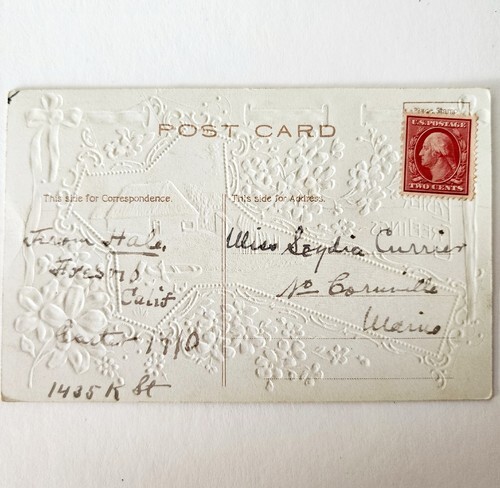 POST CARD
Place Stamp
U.S. POSTAGE
TWO CENTS
This side for Correspondence.
This side for Address.
From Hale,
Fresno
Calif
1910
1435 K St
Miss Lydia Currier
No Cornville
Maine